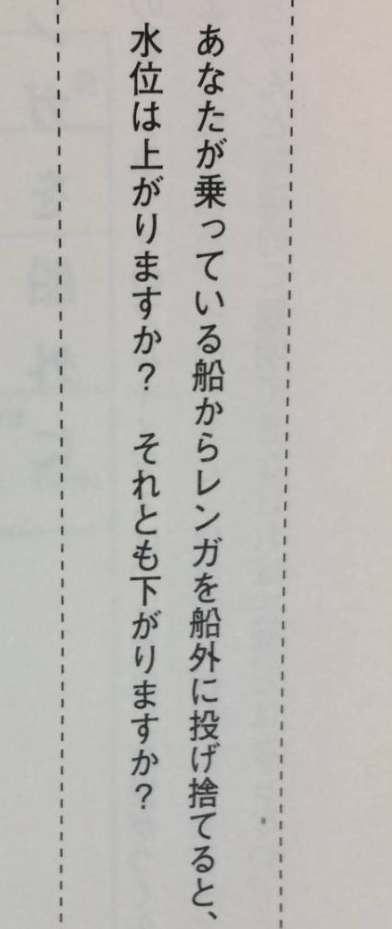 あなたが乗っている船からレンガを船外に投げ捨てると、
水位は上がりますか？　それとも下がりますか？